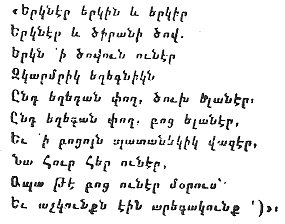 «Երկնէր երկին և երկիր
Երկնէր և ծիրանի ծով.
Երկն ՚ի ծովուն ունէր
Զկարմրիկ եղեգնիկն
Ընդ եղեգան փող, ծուխ ելանէր։
Ընդ եղեգան փող. բոց ելանէր,
Եւ ՚ի բոցոյն պատանեկիկ վազէր,
Նա Հուր Հեր ունէր,
Ապա թէ բոց ունէր մօրուս՝
Եւ աչկունքն էին արեգակունք ՚)»։